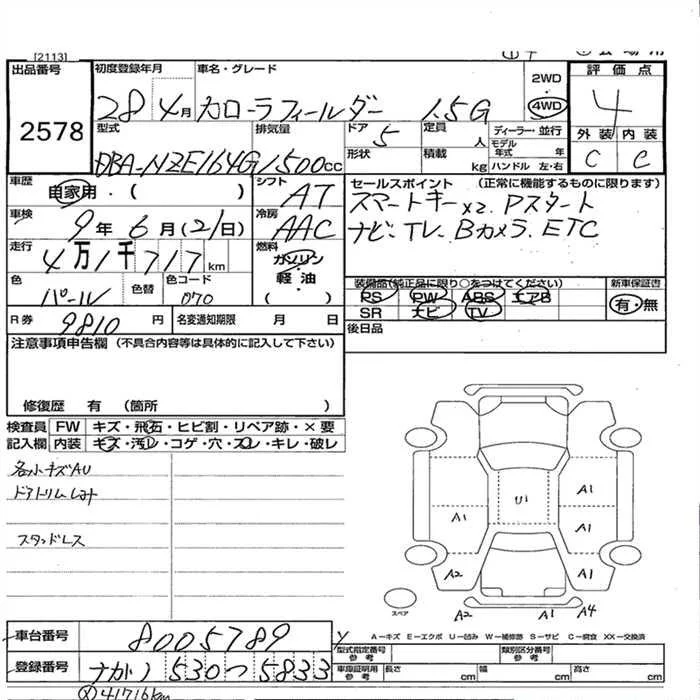 [2113]
出品番号 初度登録年月 車名・グレード 2WD 評価点
2578 28 4月 カローラフィールダー 1.5G 4WD 4
型式 排気量 ドア 定員 ディーラー・並行 外装 内装
DBA-NZE164G 1500cc 5 人 モデル年式 年 C C
形状 積載 kg ハンドル 左・右
車歴 自家用・( ) シフト AT セールスポイント (正常に機能するものに限ります)
車検 9年6月(21日) 冷房 AAC スマートキーx2. Pスタート
ナビ、TV、Bカメラ、ETC
走行 4万1千717km 燃料 ガソリン・軽油・( )
色 パール 色替 色コード 070
装備品(純正品に限り○をつけてください) 新車保証書
PS PW ABS エアB 有・無
SR ナビ TV
R券 9810円 名変通知期限 月 日 後日品
注意事項申告欄 (不具合内容等は具体的に記入して下さい)
修復歴 有 (箇所 )
検査員 FW キズ・飛石・ヒビ割・リペア跡・×要
記入欄 内装 キズ・汚れ・コゲ・穴・スレ・キレ・破レ
各小キズAU
ドアトリムしみ
スタッドレス
U1
A1
A1 A1
A2 A1
スペア
A2 A1 A4
A=キズ E=エクボ U=凹み W=補修跡 S=サビ C=腐食 XX=交換済
車台番号 8005789
型式指定番号 参考 類別区分番号 参考
登録番号 ナガノ 530 つ 5833
車庫証明用 参考 長さ cm 幅 cm 高さ cm
41716km